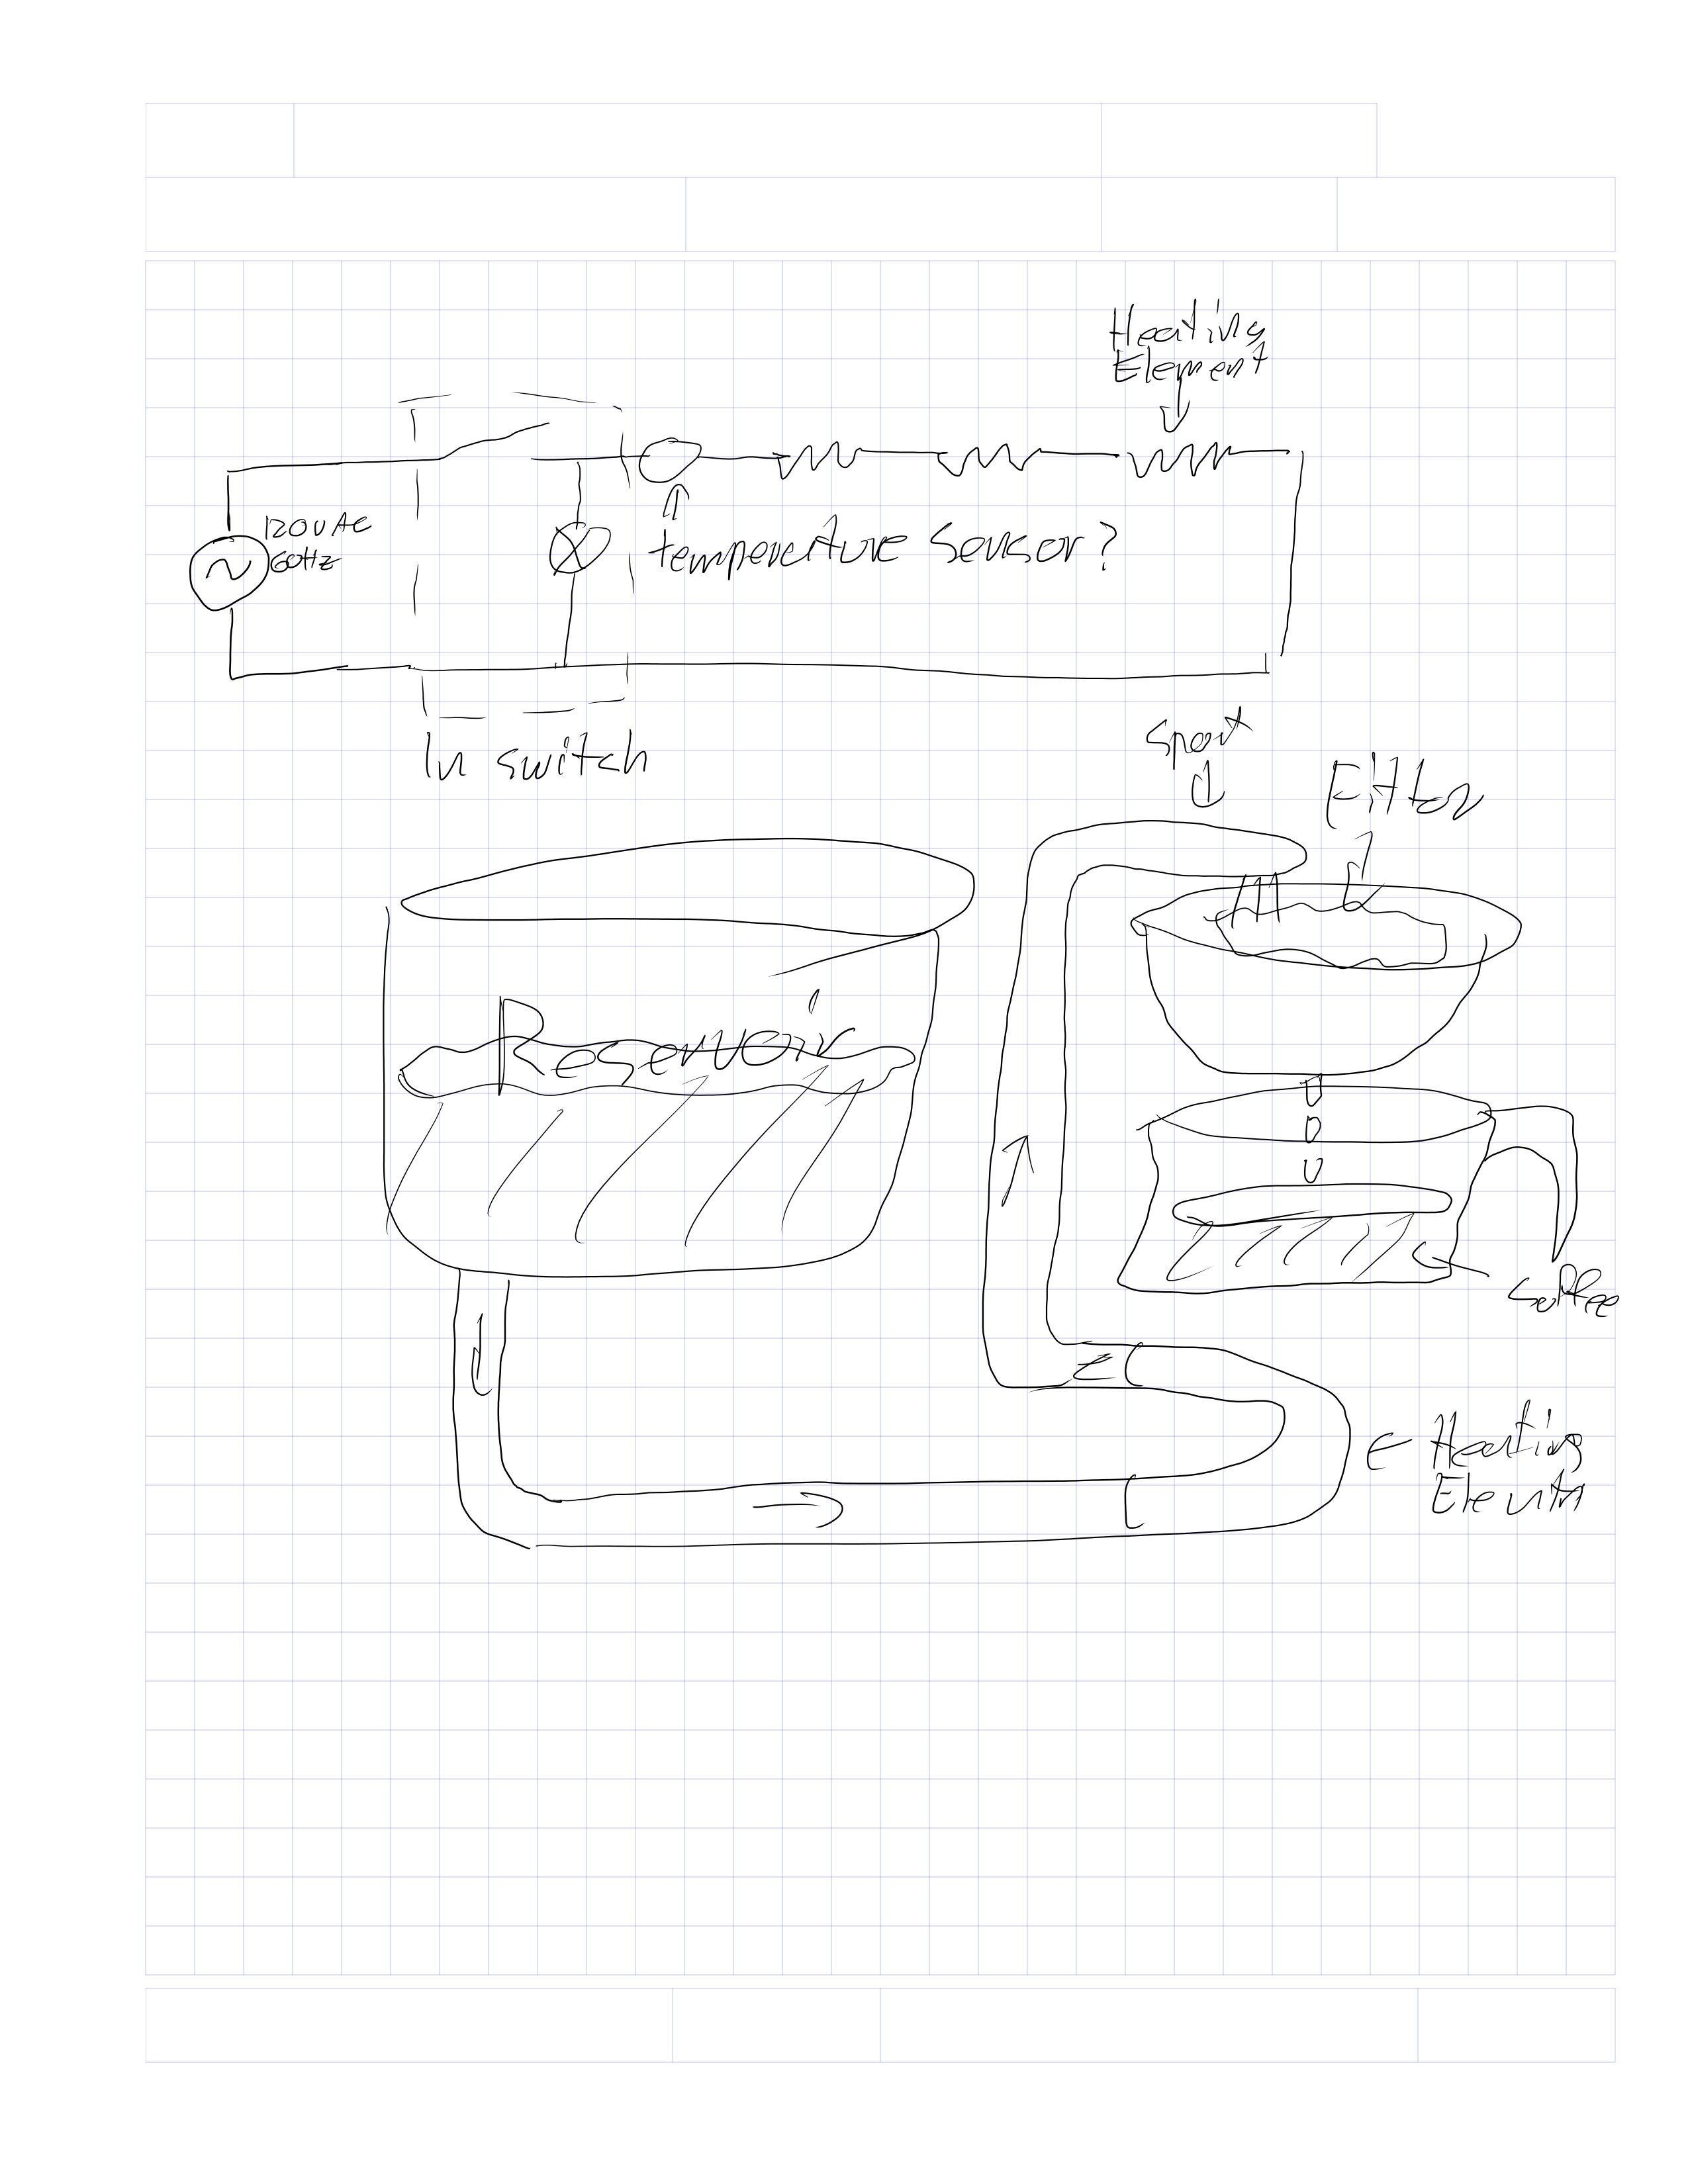 Heating
Element
120VAC
60Hz
temperature sensor?
In switch
Spout
Filter
Reservoir
coffee
Heating